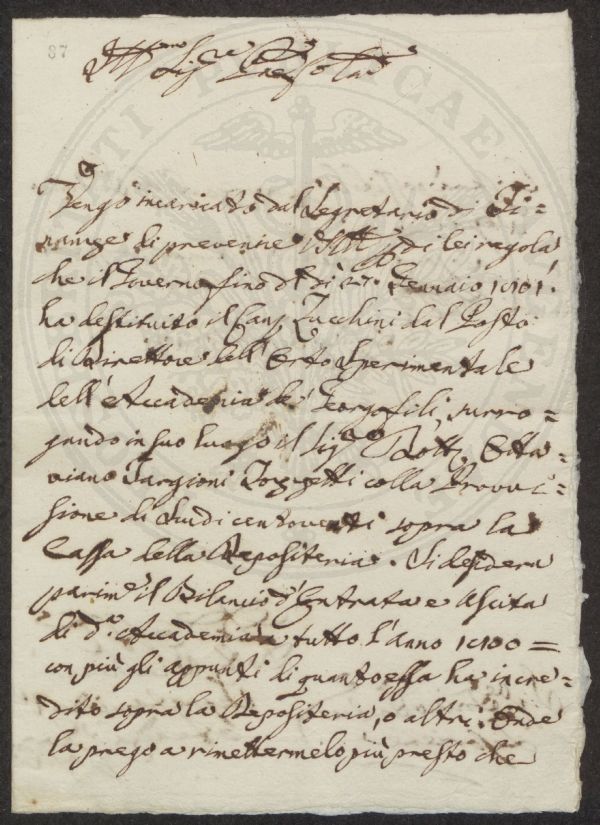 87
Ill.mo Sig.re
Vengo incaricato dal Segretario di Fi=
nanze di prevenire di lei regola
che il Governo fino dì 27. Gennaio 1801.
ha destituito il Can.co Zucchini dal Posto
di Direttore dell'Orto Sperimentale
dell'Accademia de' Georgofili, surro=
gando in suo luogo il Sig.re Dott. Otta=
viano Targioni Tozzetti colla Provvi=
sione di Scudi centoventi sopra la
Cassa della Depositeria. Si desidera
parim.e il Bilancio d'Entrata e Uscita
di d.a Accademia a tutto l'anno 1800=
con più gli appunti di quanto essa ha in cre=
dito sopra la Depositeria, o altri. Onde
la prego a rimettermelo più presto che